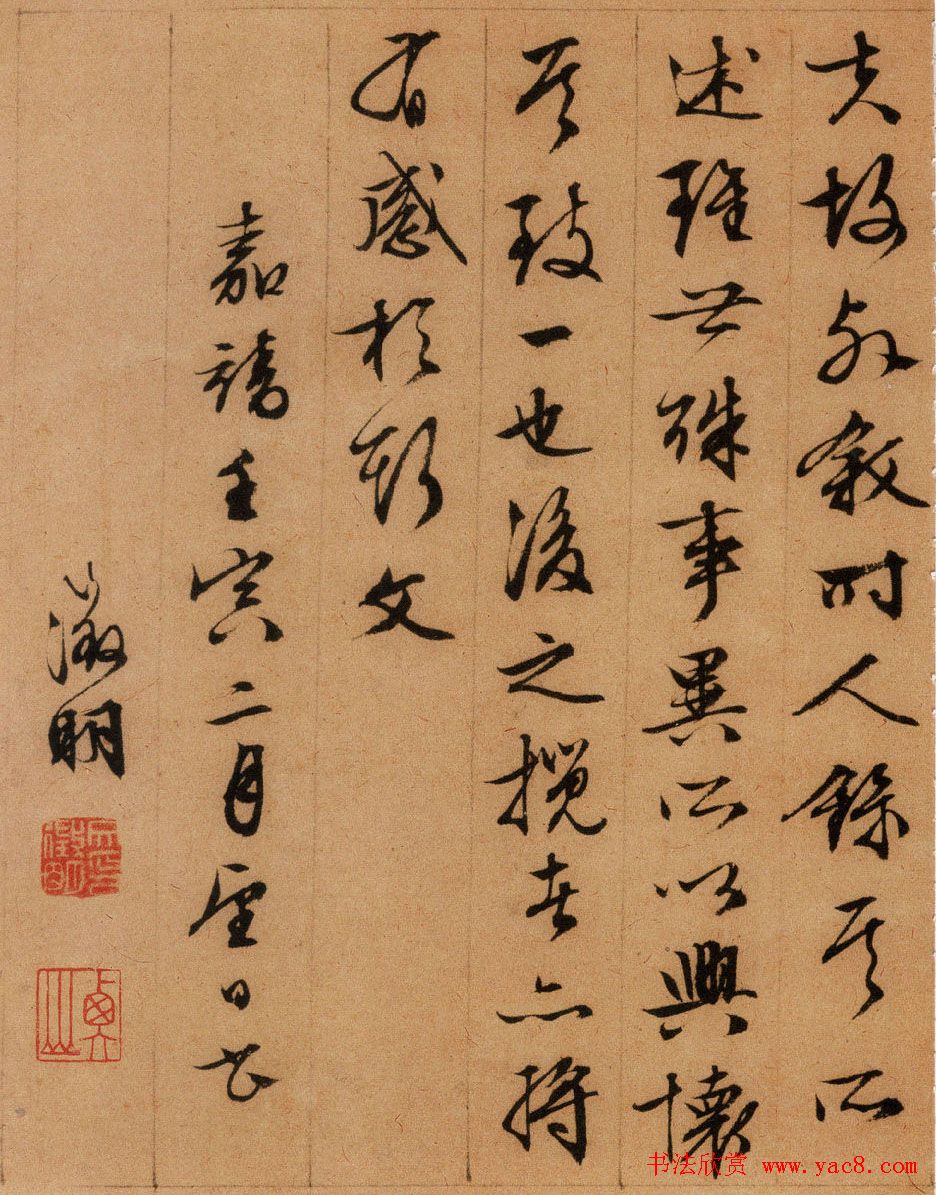 夫故列敘時人錄其所
述雖世殊事異所以興懷
其致一也後之攬者亦將
有感於斯文
嘉靖壬寅二月望日書
徵明
書法欣赏 www.yac8.com